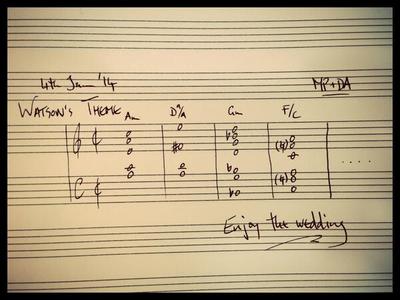 4th Jan '14
MP+DA
WATSON'S THEME Am D7/A Gm F/C
Enjoy the wedding